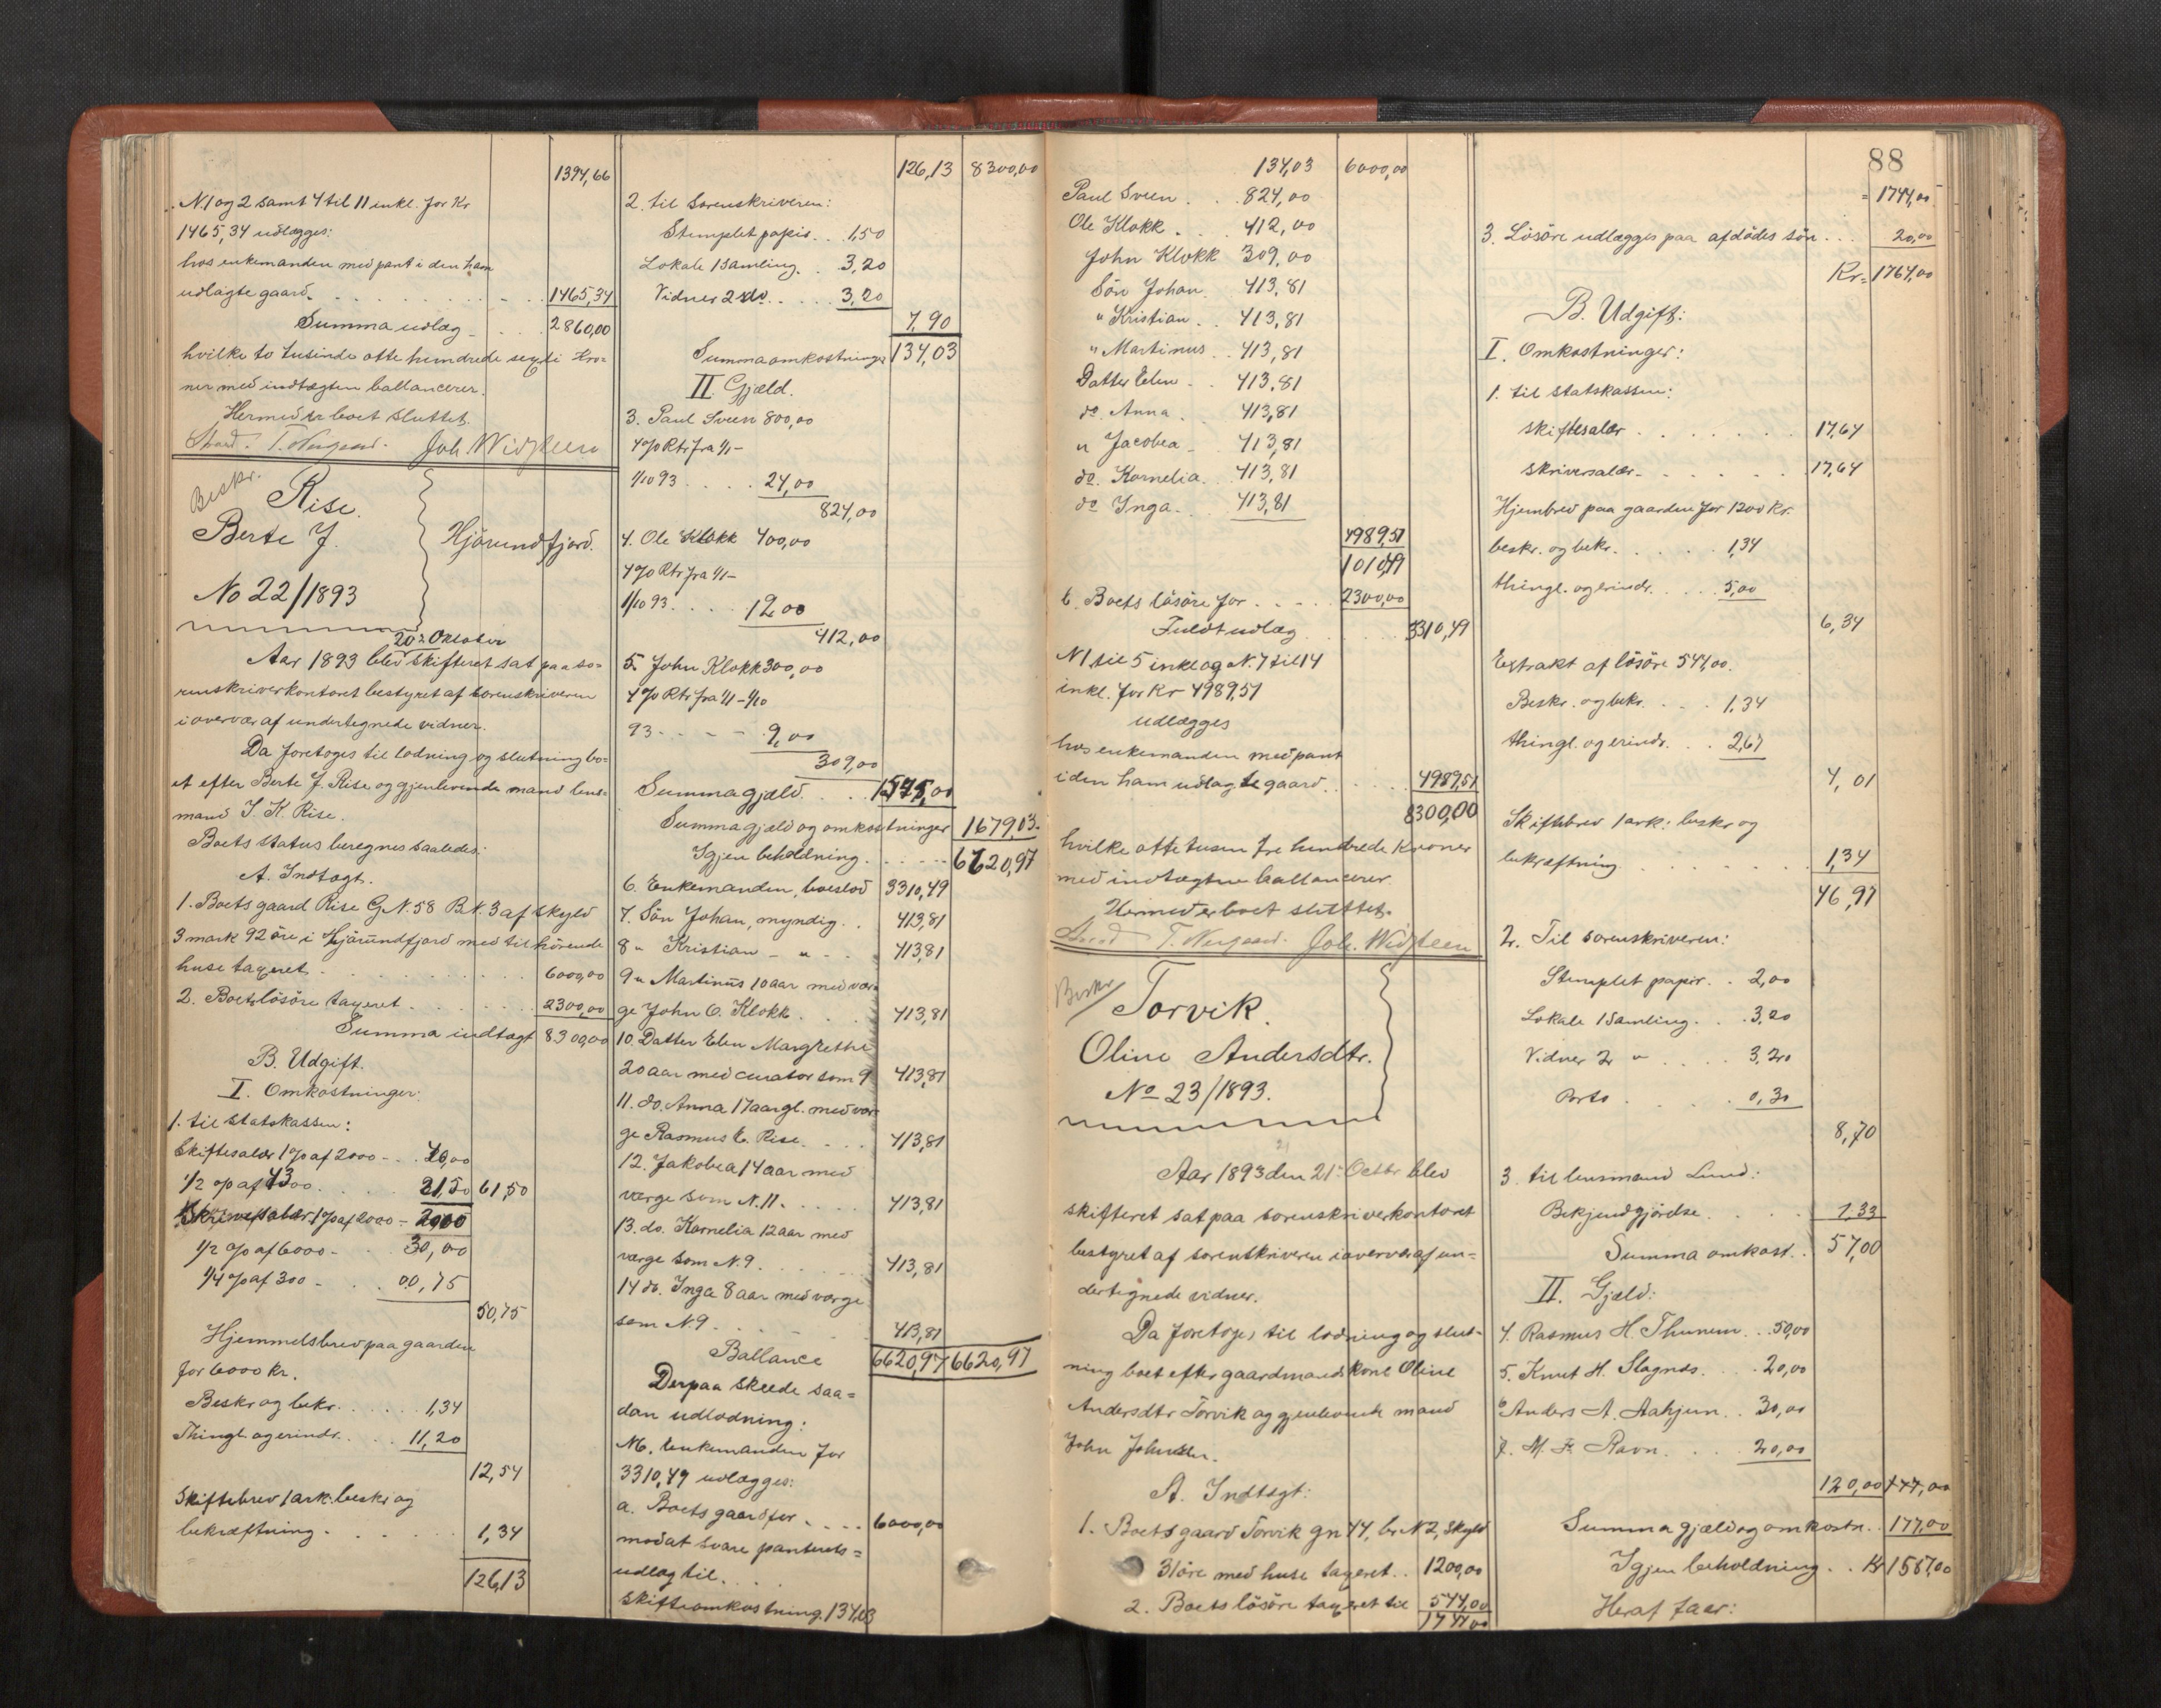 1394,66
N. 1 og 2 samt 4 til 11 inkl. for Kr
1465,34 udlægges:
hos enkemanden med pant i den ham
udlagte gaard. . . . 1465,34
Summa udlæg . . 2860,00
hvilke to tusinde otte hundrede sexti Kro=
ner med indtægten ballancerer.
Hermed er boet sluttet.
Joh. Widsteen
Beskr.
Rise.
Berte J. Hjörundfjord.
No 22/1893
20de Oktober
Aar 1893 blev skifteret sat paa so=
renskriverkontoret bestyret af sorenskriveren
i overvær af undertegnede vidner.
Da foretoges til lodning og slutning bo=
et efter Berte J. Rise og gjenlevende mand lens=
mand J. K. Rise.
Boets status beregnes saaledes:
A. Indtægt.
1. Boets gaard Rise G.N. 58 B.N. 3 af skyld
3 mark 92 öre i Hjörundfjord med tilhörende
huse taxeret . . . 6000,00
2. Boets lösöre taxeret . . . 2300,00
Summa indtægt 8300,00
B. Udgift.
I. Omkostninger:
1. til statskassen:
Skiftesalær 1 % af 2000 - . . 40,00
1/2 % af 4300 . . . 21,50 61,50
Skriversalær 1 % af 2000 - 20,00
1/2 % af 6000 - . 30,00
1/4 % af 300 - . . 00,75
50,75
Hjemmelsbrev paa gaarden
for 6000 kr.
Beskr og bekr. . . . 1,34
Thingl. og erindr. . . 11,20
12,54
Skiftebrev 1 ark. beskr og
bekræftning . . . 1,34
126,13
126,13 8300,00
2. til sorenskriveren:
Stemplet papir . . 1,50
Lokale 1 samling . . 3,20
Vidner 2 do . . . 3,20
7,90
Summa omkostninger 134,03
II. Gjæld.
3. Paul Sveen 800,00
4 % Rtr fra 1/1 -
1/10 93 . . . 24,00
824,00
4. Ole Klokk 400,00
4 % Rtr fra 1/1 -
1/10 93 . . . 12,00
412,00
5. John Klokk 300,00
4 % Rtr fra 1/1 - 1/10
93 - - - 9,00
309,00
Summa gjæld . . . 1545,00
Summa gjæld og omkostninger 1679,03
Igjen beholdning . . . 6620,97
6. Enkemanden, boeslod 3310,49
7. Sön Johan, myndig . . 413,81
8 " Kristian - " - . . 413,81
9 " Martinus 10 aar med vær=
ge John O. Klokk . . . 413,81
10. Datter Elen Margrethe
20 aar med curator som 9 413,81
11. do. Anna 17 aar gl. med vær=
ge Rasmus E. Rise . . . 413,81
12. Jakobea 14 aar med
værge som N. 11. . . . 413,81
13. do. Kornelia 12 aar med
værge som N. 9 . . . 413,81
14 do. Inga 8 aar med værge
som N. 9 . . . 413,81
Ballance 6620,97 6620,97
Derpaa skeede saa=
dan udlodning:
N. 6. Enkemanden for
3310,49 udlægges:
a. Boets gaard for . . . 6000,00
modat svare panterets=
udlæg til . . .
skifteomkostning. 134,03
134,03 6000,00
Paul Sveen . . 824,00
Ole Klokk . . . 412,00
John Klokk 309,00
Sön Johan . 413,81
" Kristian . . 413,81
" Martinus . . 413,81
Datter Elen . . 413,81
do. Anna . 413,81
" Jacobea - 413,81
do. Kornelia . 413,81
do Inga - . 413,81
4989,51
1010,49
b. Boets lösöre for . . . 2300,00
Fuldt udlæg . . . 3310,49
N. 1 til 5 inkl og N. 7 til 14
inkl. for Kr 4989,51
udlægges
hos enkemanden med pant
i den ham udlagte gaard . . . 4989,51
8300,00
hvilke otte tusen tre hundrede Kroner
med indtægten ballancerer.
Hermed er boet sluttet.
Joh. Widsteen
Beskr
Torvik.
Oline Andersdtr.
No 23/1893.
Aar 1893 den 21. Octbr blev
skifteret sat paa sorenskriverkontoret
bestyret af sorenskriveren i overvær af un=
dertegnede vidner.
Da foretoges til lodning og slut=
ning boet efter gaardmandskone Oline
Andersdtr Torvik og gjenlevende mand
John Johnsen.
A. Indtægt:
1. Boets gaard Torvik gn 44, br. N 2, skyld
31 öre med huse taxeret . . 1200,00
2. Boets lösöre taxeret til 544,00
1744,00
88
= 1744,00
3. Lösöre udlægges paa afdödes sön . . . 20,00
Kr. 1764,00
B. Udgift:
I. Omkostninger:
1. til statskassen:
Skiftesalær . . . 17,64
Skriversalær . . . 17,64
Hjembrev paa gaarden for 1200 kr.
beskr. og bekr. . . . 1,34
thingl. og erindr. . . . 5,00
6,34
Extrakt af lösöre 544,00.
Beskr. og bekr. . . . 1,34
thingl. og erindr. . . 2,67
4,01
Skiftebrev 1 ark: beskr og
bekræftning . . . 1,34
46,97
2. Til sorenskriveren:
Stemplet papir . . 2,00
Lokale 1 samling . . 3,20
Vidner 2 " . . . 3,20
Porto . . . 0,30
8,70
3. til lensmand Lund:
Bekjendgjörelse . . . 1,33
Summa omkost. . 57,00
II. Gjæld:
4. Rasmus H. Thunem . . 50,00
5. Knut H. Slagnes . . 20,00
6 Anders A. Aahjem . . 30,00
7. M. F. Ravn . . . 20,00
120,00 177,00
Summa gjæld og omkostn. . 177,00
Igjen beholdning . . Kr 1587,00
Heraf faar: